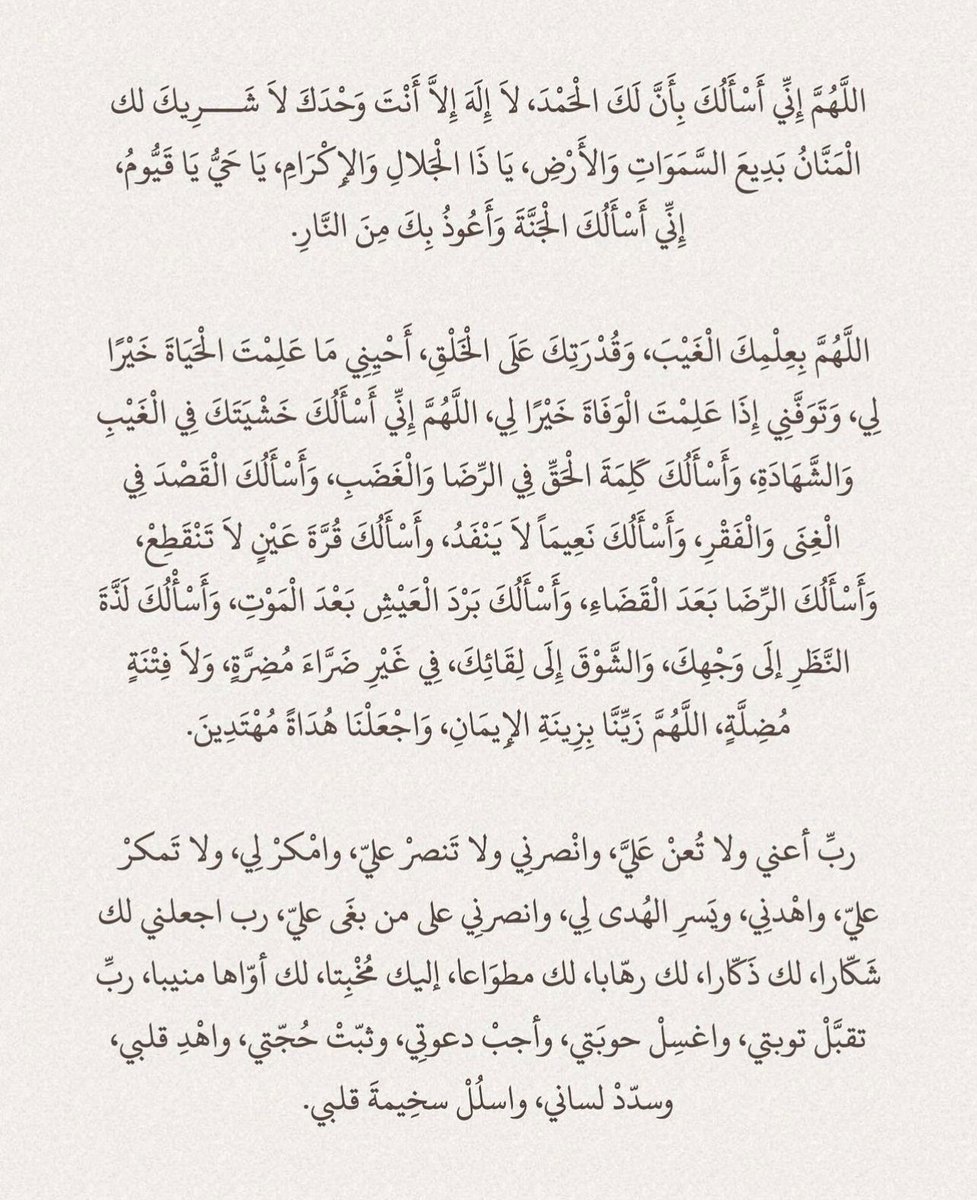 اللَّهُمَّ إِنِّي أَسْأَلُكَ بِأَنَّ لَكَ الْحَمْدَ، لاَ إِلَهَ إِلاَّ أَنْتَ وَحْدَكَ لاَ شَـــــرِيكَ لك
الْمَنَّانُ بَدِيعَ السَّمَوَاتِ وَالأَرْضِ، يَا ذَا الْجَلالِ وَالإِكْرَامِ، يَا حَيُّ يَا قَيُّومُ،
إِنِّي أَسْأَلُكَ الْجَنَّةَ وَأَعُوذُ بِكَ مِنَ النَّارِ.
اللَّهُمَّ بِعِلْمِكَ الْغَيْبَ، وَقُدْرَتِكَ عَلَى الْخَلْقِ، أَحْيِنِي مَا عَلِمْتَ الْحَيَاةَ خَيْرًا
لِي، وَتَوَفَّنِي إِذَا عَلِمْتَ الْوَفَاةَ خَيْرًا لِي، اللَّهُمَّ إِنِّي أَسْأَلُكَ خَشْيَتَكَ فِي الْغَيْبِ
وَالشَّهَادَةِ، وَأَسْأَلُكَ كَلِمَةَ الْحَقِّ فِي الرِّضَا وَالْغَضَبِ، وَأَسْأَلُكَ الْقَصْدَ فِي
الْغِنَى وَالْفَقْرِ، وَأَسْأَلُكَ نَعِيمَاً لاَ يَنْفَدُ، وأَسْأَلُكَ قُرَّةَ عَيْنٍ لاَ تَنْقَطِعْ،
وَأَسْأَلُكَ الرِّضَا بَعَدَ الْقَضَاءِ، وَأَسْأَلُكَ بَرْدَ الْعَيْشِ بَعْدَ الْمَوْتِ، وَأَسْأْلُكَ لَذَّةَ
النَّظَرِ إلَى وَجْهِكَ، وَالشَّوْقَ إِلَى لِقَائِكَ، فِي غَيْرِ ضَرَّاءَ مُضِرَّةٍ، وَلاَ فِتْنَةٍ
مُضِلَّةٍ، اللَّهُمَّ زَيِّنَّا بِزِينَةِ الإِيمَانِ، وَاجْعَلْنَا هُدَاةً مُهْتَدِينَ.
ربِّ أعني ولا تُعنْ عَليَّ، وانْصرنِي ولا تَنصرْ عليّ، وامْكرْ لِي، ولا تَمكرْ
عليّ، واهْدنِي، ويَسرِ الهُدى لِي، وانصرنِي على من بغَى عليّ، رب اجعلني لك
شَكّارا، لك ذَكّارا، لك رهّابا، لك مطوَاعا، إليك مُخْبِتا، لك أوّاها منيبا، ربِّ
تقبَّلْ توبتي، واغسِلْ حوبَتي، وأجبْ دعوتِي، وثبّتْ حُجّتي، واهْدِ قلبي،
وسدّدْ لساني، واسلُلْ سخِيمةَ قلبي.